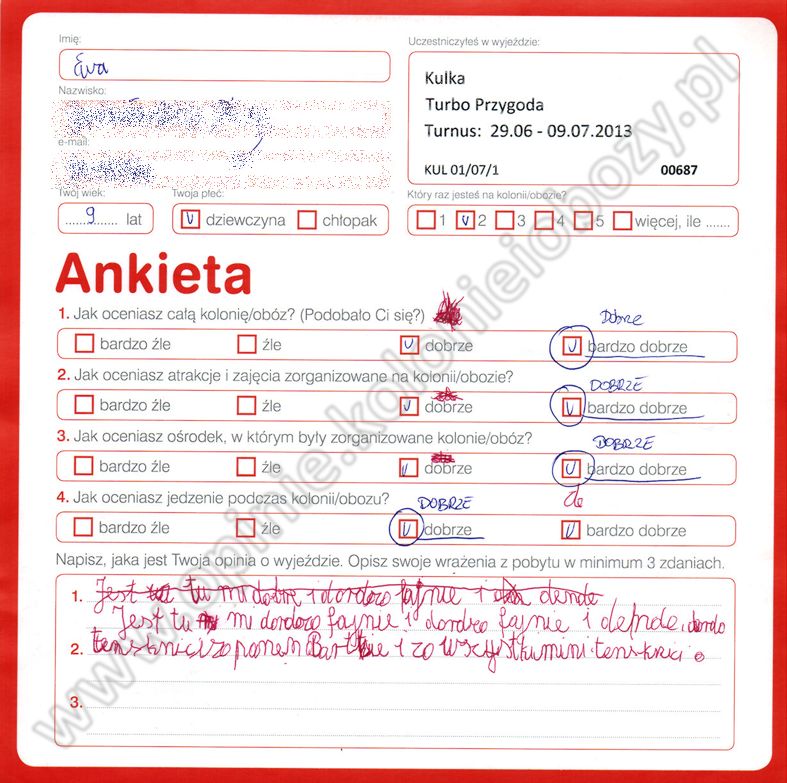 Imię:
Ewa
Nazwisko:
e-mail:
Twój wiek:
......9...... lat
Twoja płeć:
v dziewczyna chłopak
Uczestniczyłeś w wyjeździe:
Kulka
Turbo Przygoda
Turnus: 29.06 - 09.07.2013
KUL 01/07/1 00687
Który raz jesteś na kolonii/obozie?
1 v 2 3 4 5 więcej, ile .......
Ankieta
1. Jak oceniasz całą kolonię/obóz? (Podobało Ci się?) Dobrze
bardzo źle źle v dobrze v bardzo dobrze
2. Jak oceniasz atrakcje i zajęcia zorganizowane na kolonii/obozie? DOBRZE
bardzo źle źle v dobrze v bardzo dobrze
3. Jak oceniasz ośrodek, w którym były zorganizowane kolonie/obóz? DOBRZE
bardzo źle źle v dobrze v bardzo dobrze
4. Jak oceniasz jedzenie podczas kolonii/obozu? DOBRZE
bardzo źle źle v dobrze v bardzo dobrze
Napisz, jaka jest Twoja opinia o wyjeździe. Opisz swoje wrażenia z pobytu w minimum 3 zdaniach.
1. Jest tu mi dobrze i dordzo fajnie i
Jest tu mi dordzo fajnie i dordzo fajnie i
2. panem i
3.
www.opinie.kolonieiobozy.pl